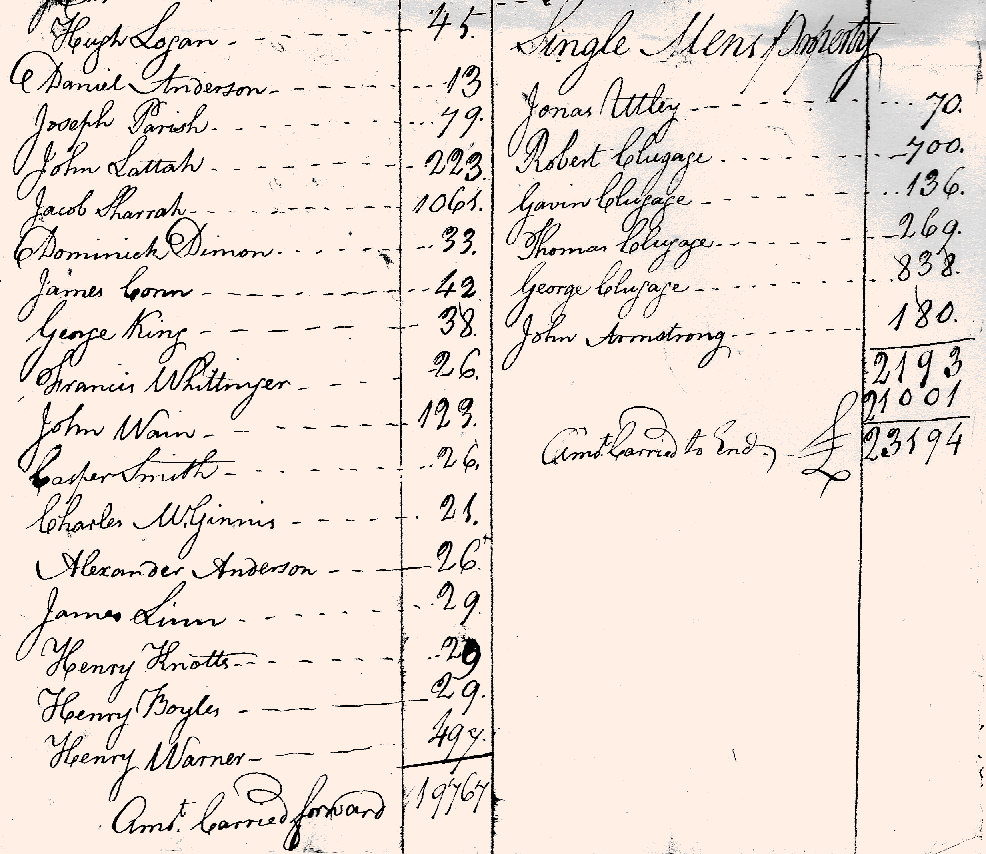 Hugh Logan - 45.
Daniel Anderson - 13
Joseph Parish - 79.
John Lattah - 223.
Jacob Sharrah - 1061.
Dominick Dimon - 33.
James Conn - 42
George King - 38.
Francis Whittinger - 26.
John Wain - 123.
Casper Smith - 26.
Charles McGinnis - 21.
Alexander Anderson - 26
James Linn - 29
Henry Knotts - 29
Henry Boyles - 29.
Henry Warner - 497.
Amt. Carried forward 19767
Single Mens Property
Jonas Uttley - 70.
Robert Clugage - 700.
Gavin Clugage - 136.
Thomas Clugage - 269.
George Clugage - 838.
John Armstrong - 180.
2193
21001
Amt. Carried to End, - £ 23194